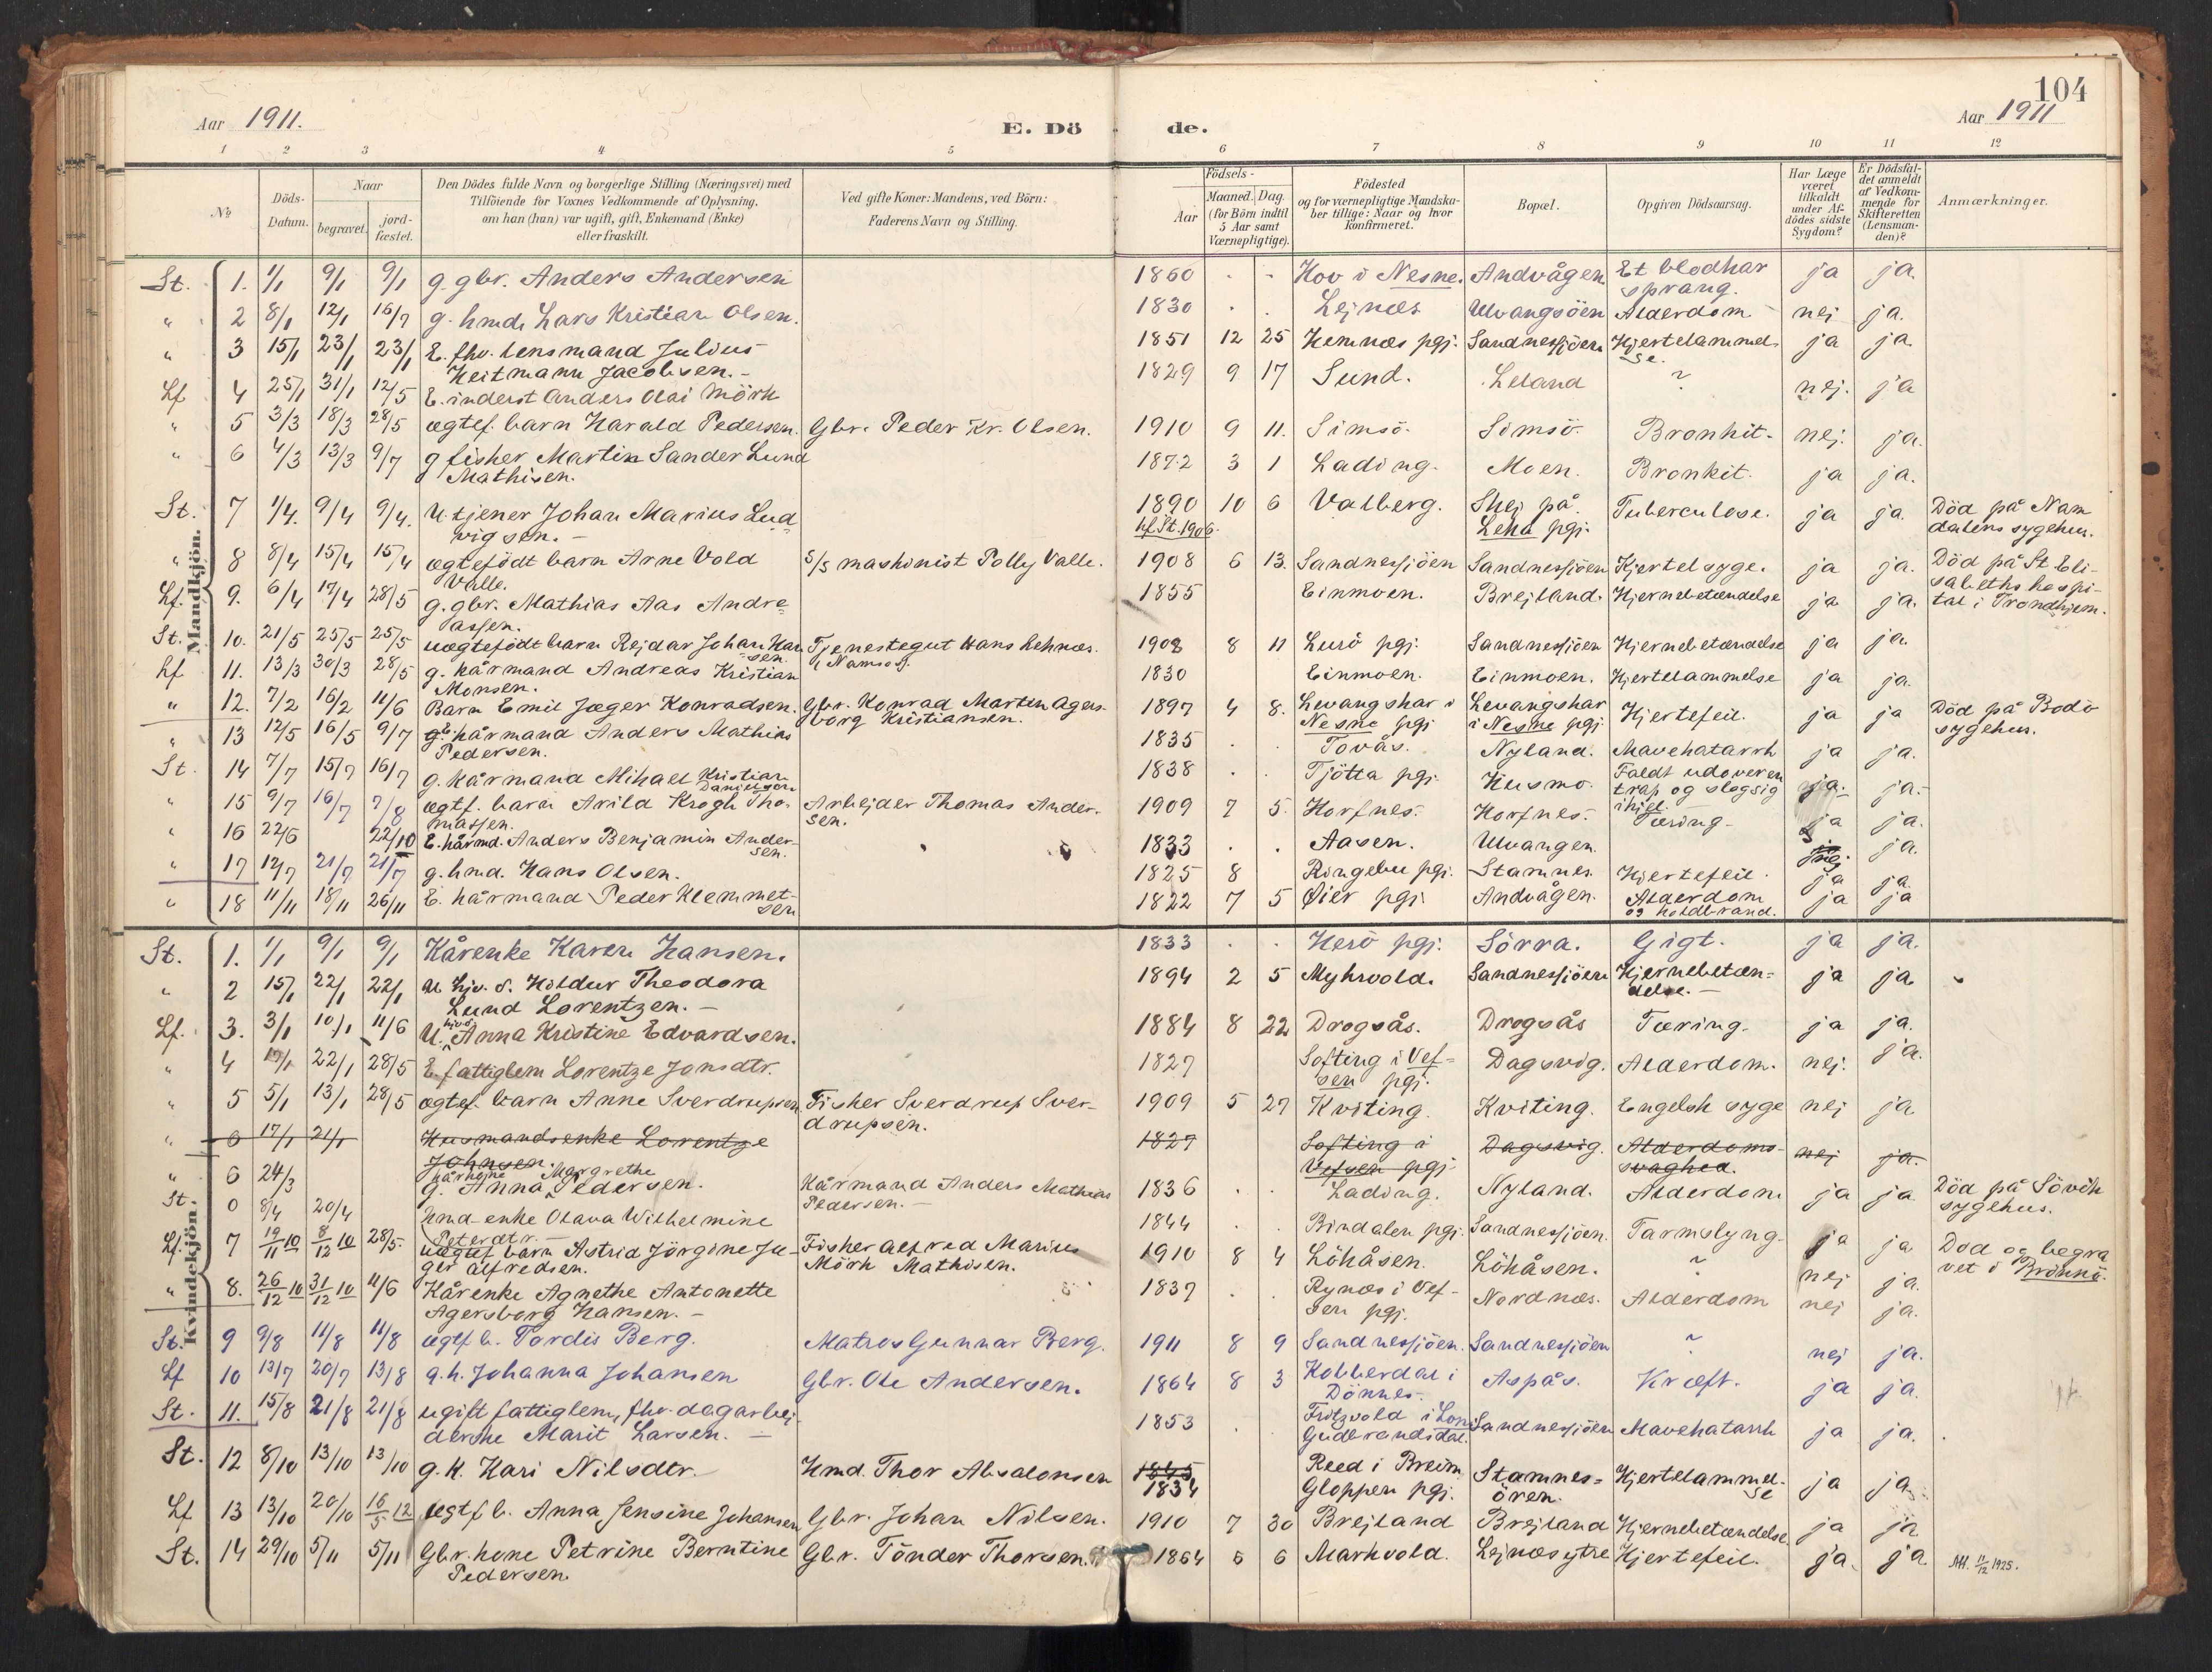 104
Aar 1911.
E. Dö de.
Aar 1911
1 2 3 4 5 6 7 8 9 10 11 12
№
Döds-Datum.
Naar begravet. jordfæstet.
Den Dödes fulde Navn og borgerlige Stilling (Næringsvei) med Tilföiende for Voxnes Vedkommende af Oplysning, om han (hun) var ugift, gift, Enkemand (Enke) eller fraskilt.
Ved gifte Koner: Mandens, ved Börn: Faderens Navn og Stilling.
Födsels- Aar Maaned. Dag. (for Börn indtil 5 Aar samt Værnepligtige).
Födested og for værnepligtige Mandskaber tillige: Naar og hvor konfirmeret.
Bopæl.
Opgiven Dödsaarsag.
Har Læge været tilkaldt under Afdödes sidste Sygdom?
Er Dödsfaldet anmeldt af Vedkommende for Skifteretten (Lensmanden)?
Anmærkninger.
Mandkjön.
St. 1. 1/1 9/1 9/1 g. gbr. Anders Andersen 1860 . - Hov i Nesne. Andvågen Et blodkar sprang. ja ja.
" 2 8/1 12/1 16/7 g. hmd. Lars Kristian Olsen. 1830 . . Lejnæs Ulvangsöen Alderdom nej ja.
" 3 15/1 23/1 23/1 E. fhv. lensmand Julius Heitmann Jacobsen. - 1851 12 25 Hemnæs pgj. Sandnessjöen Hjertelammelse. ja ja
Lf 4 25/1 31/1 12/5 E. inderst Anders Olai Mörk 1829 9 17 Sund. Leland ? nej. ja
" 5 3/3 18/3 28/5 ægtef. barn Harald Pedersen. Gbr. Peder Kr. Olsen. 1910 9 11. Simsö. Simsö. Bronkit. nej. ja.
" 6 4/3 13/3 9/7 g fisker Martin Sander Lund Mathisen. 1872 3 1 Lading. Moen. Bronkit. ja ja.
St. 7 1/4. 9/4 9/4. U. tjener Johan Marius Ludvigsen. - 1890 10 6 kf. St. 1906. Valberg. Skej på Leka pgj. Tuberculose. ja ja. Död på Namdalens sygehus.
" 8 8/4 15/4 15/4 ægtefödt barn Arne Vold Valle. s/s maskinist Polly Valle. 1908 6 13. Sandnessjöen Sandnessjöen Kjertelsyge. ja ja. Död på St. Elisabeths hospital i Trondhjem.
Lf. 9. 6/4 17/4 28/5 g. gbr. Mathias Aas Andreassen. 1855 Einmoen. Brejland. Hjernebetændelse ja ja.
St. 10. 21/5 25/5 25/5 uægtefödt barn Rejdar Johan Hansen. Tjenestegut Hans Lehnæs. i Namsos. 1908 8 11 Lurö pgj. Sandnessjöen Hjernebetændelse ja ja.
Lf 11. 13/3 30/3 28/5 g. kårmand Andreas Kristian Monsen. 1830 Einmoen. Einmoen. Hjertelammelse ja ja.
" 12. 7/2 16/2 11/6 Barn Emil Jæger Konradsen. Gbr. Konrad Martin Agersborg Kristiansen. 1897 4 8. Levangskar i Nesne pgj Levangskar i Nesne pgj Hjertefeil. ja ja Död på Bodö sygehus.
" 13 12/5 16/5 9/7 g. kårmand Anders Mathias Pedersen. 1835 . . Tovås. Nyland. Mavekatarrh ja ja.
St. 14 7/7 15/7 16/7 g. kårmand Mikael Kristian Danielsen 1838 . Tjötta pgj. Husmo. Faldt udover en trap og slog sig ihjel. ja. ja.
" 15 9/7 16/7 7/8 ægtf. barn Arild Krogh Thomassen. Arbejder Thomas Andersen. 1909 7 5. Horfnes. Horfnes. Tæring. ja ja.
" 16 22/6 22/10 E. kårmd. Anders Benjamin Andersen. 1833 . . Aasen. Ulvangen. nej ja.
" 17 12/7 21/7 21/7 g. hmd. Hans Olsen. 1825 8 Ringebu pgj. Stamnes. Hjertefeil. ja ja.
" 18 11/11 18/11 26/11 E. kårmand Peder Klemmetsen 1822 7 5 Øier pgj. Andvågen. Alderdom og koldbrand. ja ja
Kvindekjön.
St. 1. 1/1 9/1 9/1 Kårenke Karen Hansen. 1833 . . Herö pgj. Sörra. Gigt. ja ja.
" 2 15/1 22/1 22/1 U. hjv. d. Hildur Theodora Lund Lorentzen. - 1894 2 5 Myhrvold. Sandnessjöen Hjernebetændelse. - ja ja.
Lf. 3. 3/1 10/1 11/6 U. Anna Kristine Edvardsen. 1884 8 22 Drogsås. Drogsås Tæring. ja ja.
" 4 19/1 22/1 28/5 E. fattiglem Lorentze Jonsdtr. 1827 Softing i Vefsen pgj. Dagsvig. Alderdom. nej. ja.
" 5 5/1 13/1 28/5 ægtef. barn Anne Sverdrupsen Fisker Sverdrup Sverdrupsen. 1909 5 27 Kviting. Kviting. Engelsk syge nej ja.
" 6 17/1 21/1 Husmandsenke Lorentze Johnsen. 1827 Softing i Vefsen pgj. Dagsvig. Alderdomssvaghed. nej ja.
" 6 24/3 g. kårkone Anna Margrethe Pedersen. Kårmand Anders Mathias Pedersen. - 1836 . . Lading. Nyland. Alderdom ja ja.
St. 0 8/4 20/4 Hmd-enke Olava Wilhelmine Petersdtr. - 1844 . . Bindalen pgj. Sandnessjöen. Tarmslyng. ja ja Död på Sövik sygehus.
Lf. 7 19/11 10 8/12 10 28/5. uægtef barn Astrid Jörgine Jæger Alfredsen. Fisker Alfred Marius Mörk Mathisen. 1910 8 4 Löhåsen. Löhåsen. ? nej ja. Död og begravet i Brönnö.
" 8. 26/12 10 31/12 10 11/6 Kårenke Agnethe Antonette Agersborg Hansen. - 1837 . . Rynæs i Vefsen pgj. Nordnæs. Alderdom nej ja.
St. 9 9/8 11/8 11/8 ægtf. b. Tordis Berg. Matros Gunnar Berg. 1911 8 9 Sandnessjöen. Sandnessjöen ? nej ja.
Lf 10 13/7 20/7 13/8 g. h. Johanna Johansen Gbr. Ole Andersen. 1864 8 3 Kobberdal i Dönnes. Aspås. Kræft. ja ja.
St. 11. 15/8 21/8 21/8 ugift fattiglem, fhv. dagarbejderske Marit Larsen. - 1853 . Fritzvold i Gudbrandsdal. Sandnessjöen Mavekatarrh ja ja.
St. 12 8/10 13/10 13/10 g. k. Kari Nilsdtr. Hmd. Thor Absalonsen 1845 1834 Reed i Breim Gloppen pgj. Stamnesören. Hjertelammelse ja ja.
Lf 13 13/10 20/10 16/5 12 ægtf b. Anna Jensine Johansen Gbr. Johan Nilsen. 1910 7 30 Brejland Brejland Hjernebetændelse ja ja
St. 14 29/10 5/11 5/11 Gbr. kone Petrine Berntine Pedersen. Gbr. Tönder Thorsen. 1864 6 6 Markvold. Lejnæs ytre Hjertefeil. ja. ja Att. 11/12 1925.